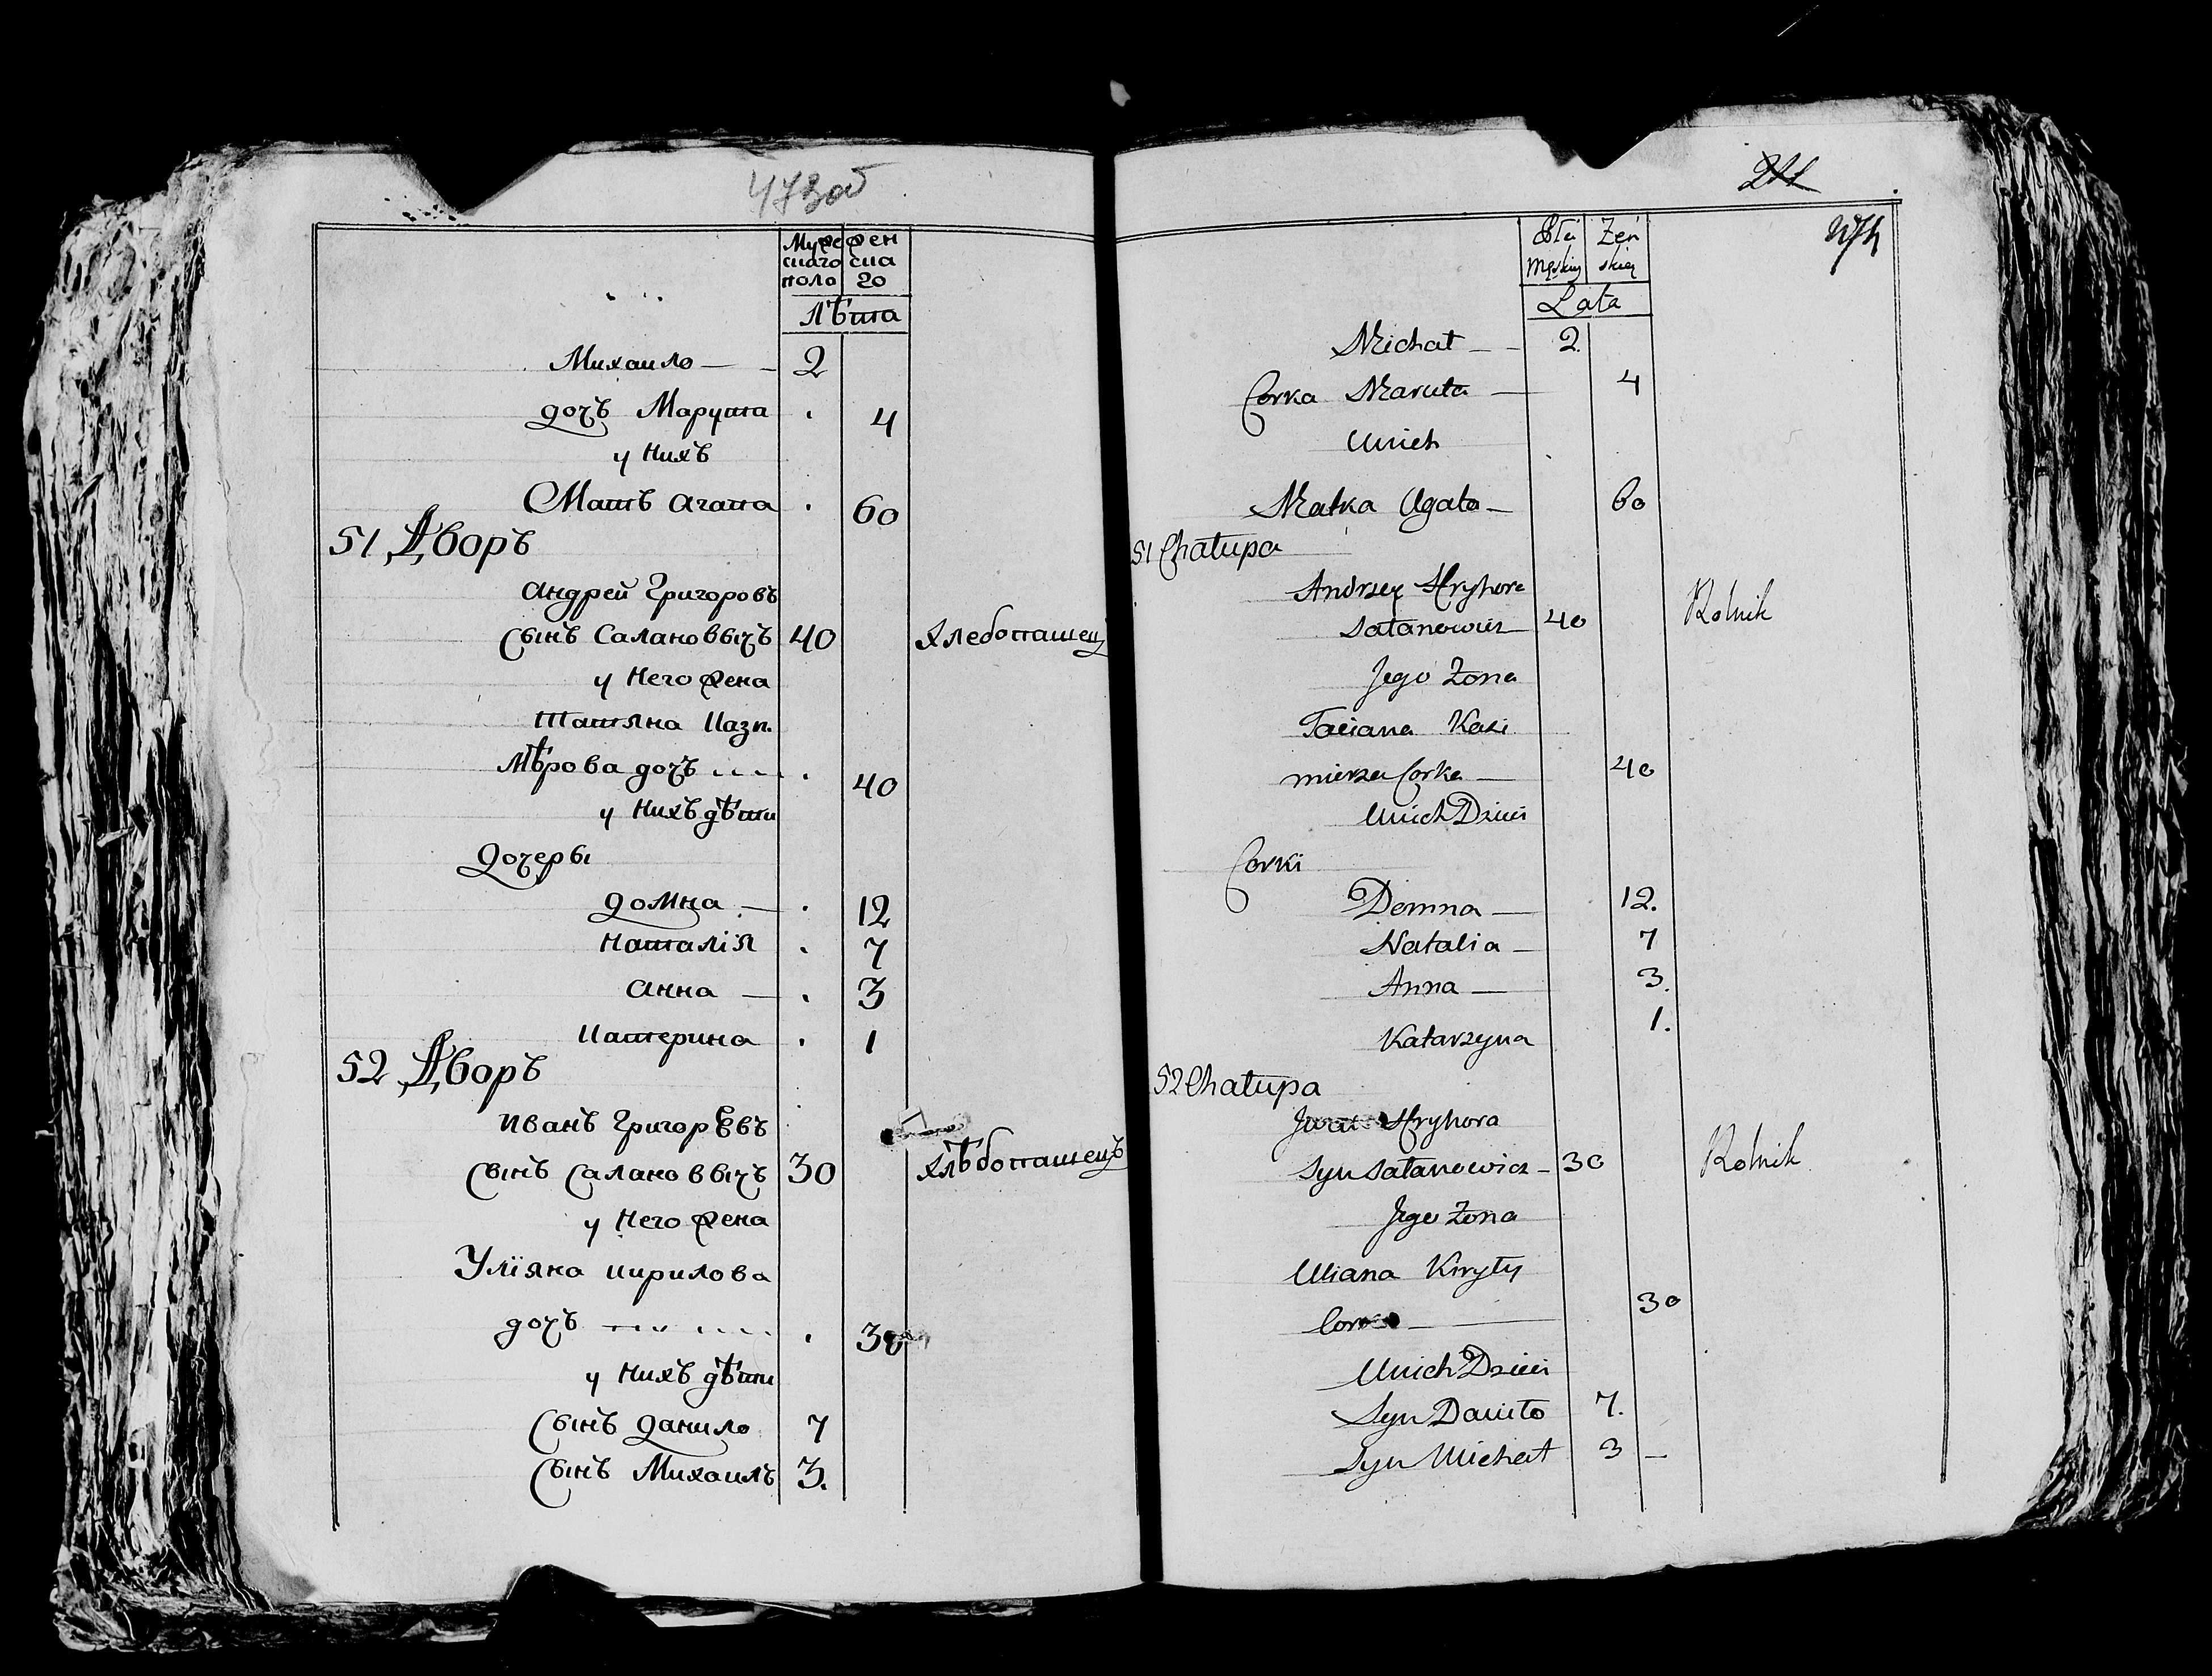 473об
Мужс жен
скаго ска
поло го
Лѣта
Михаило — - 2
дочъ Марута . 4
у Нихъ
Матъ агата . 60
51 Дворъ
андрей Григоровъ
сынъ Салановычъ 40 хлебопашец
у Него жена
татяна Казп.
мѣрова дочъ .... . 40
у Нихъ дѣти
Дочеры
домна — . 12
Наталія . 7
анна — . 3
катерина . 1
52 Дворъ
иванъ Григорѣвъ
сынъ Салановвычъ 30 хлѣбопашецъ
у Него жена
Уліяна кирилова
дочъ .... . 30
у Нихъ дѣти
сынъ данило 7
сынъ Михаилъ 3.
211
474
Płci Żeń
Męskiej skiej
Lata
Michał — - 2.
Corka Maruta — 4
Unich
Matka Agata — 60
51 Chałupa
Andrzey Hryhora
Satanowicz — 40 Rolnik
Jego Zona
Taciana Kazi
mierza Corka — 40
Unich Dzieci
Corki
Domna — 12.
Natalia — 7
Anna — 3.
Katarzyna 1.
52 Chałupa
Iwan Hryhora
Syn Satanowicz — 30 Rolnik
Jego Zona
Uliana Kiryły
Corka — 30
Unich Dzieci
Syn Daniło 7.
Syn Michał 3 —